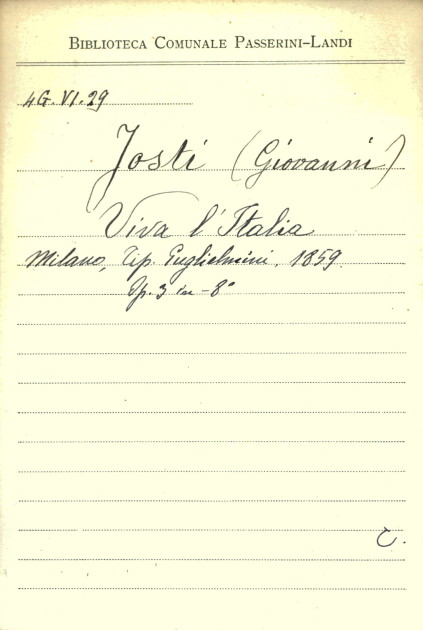 BIBLIOTECA COMUNALE PASSERINI-LANDI
4G. VI. 29
Josti (Giovanni)
Viva l'Italia
Milano, Tip. Guglielmini, 1859.
Op. 3 in-8°
C.